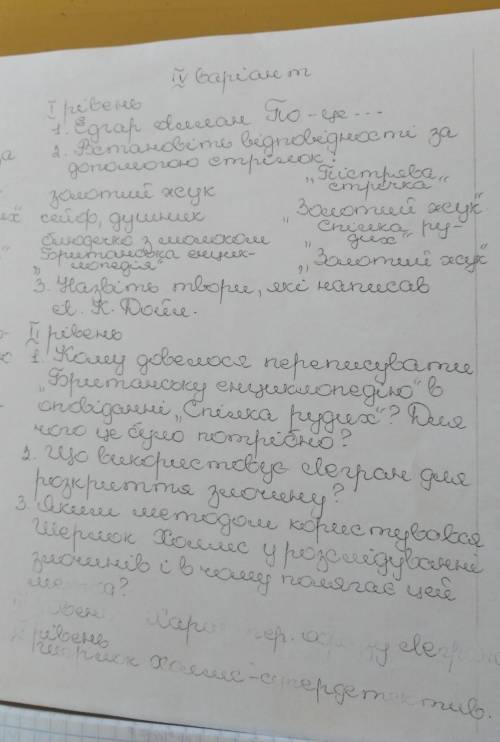 IV варіант
I рівень
1. Едгар Аллан По - це ...
2. Встановіть відповідності за
допомогою стрілок:
золотий жук „Пістрява стрічка“
сейф, душник „Золотий жук“
блюдечко з молоком „Спілка рудих“
„Британська енциклопедія“ „Золотий жук“
3. Назвіть твори, які написав
А. К. Дойл.
II рівень
1. Кому довелося переписувати
„Британську енциклопедію“ в
оповіданні „Спілка рудих“? Для
чого це було потрібно?
2. Що використовує Легран для
розкриття злочину?
3. Яким методом користувався
Шерлок Холмс у розслідуванні
злочинів і в чому полягає цей
Леграна
рівень
Шерлок Холмс - супердетектив.